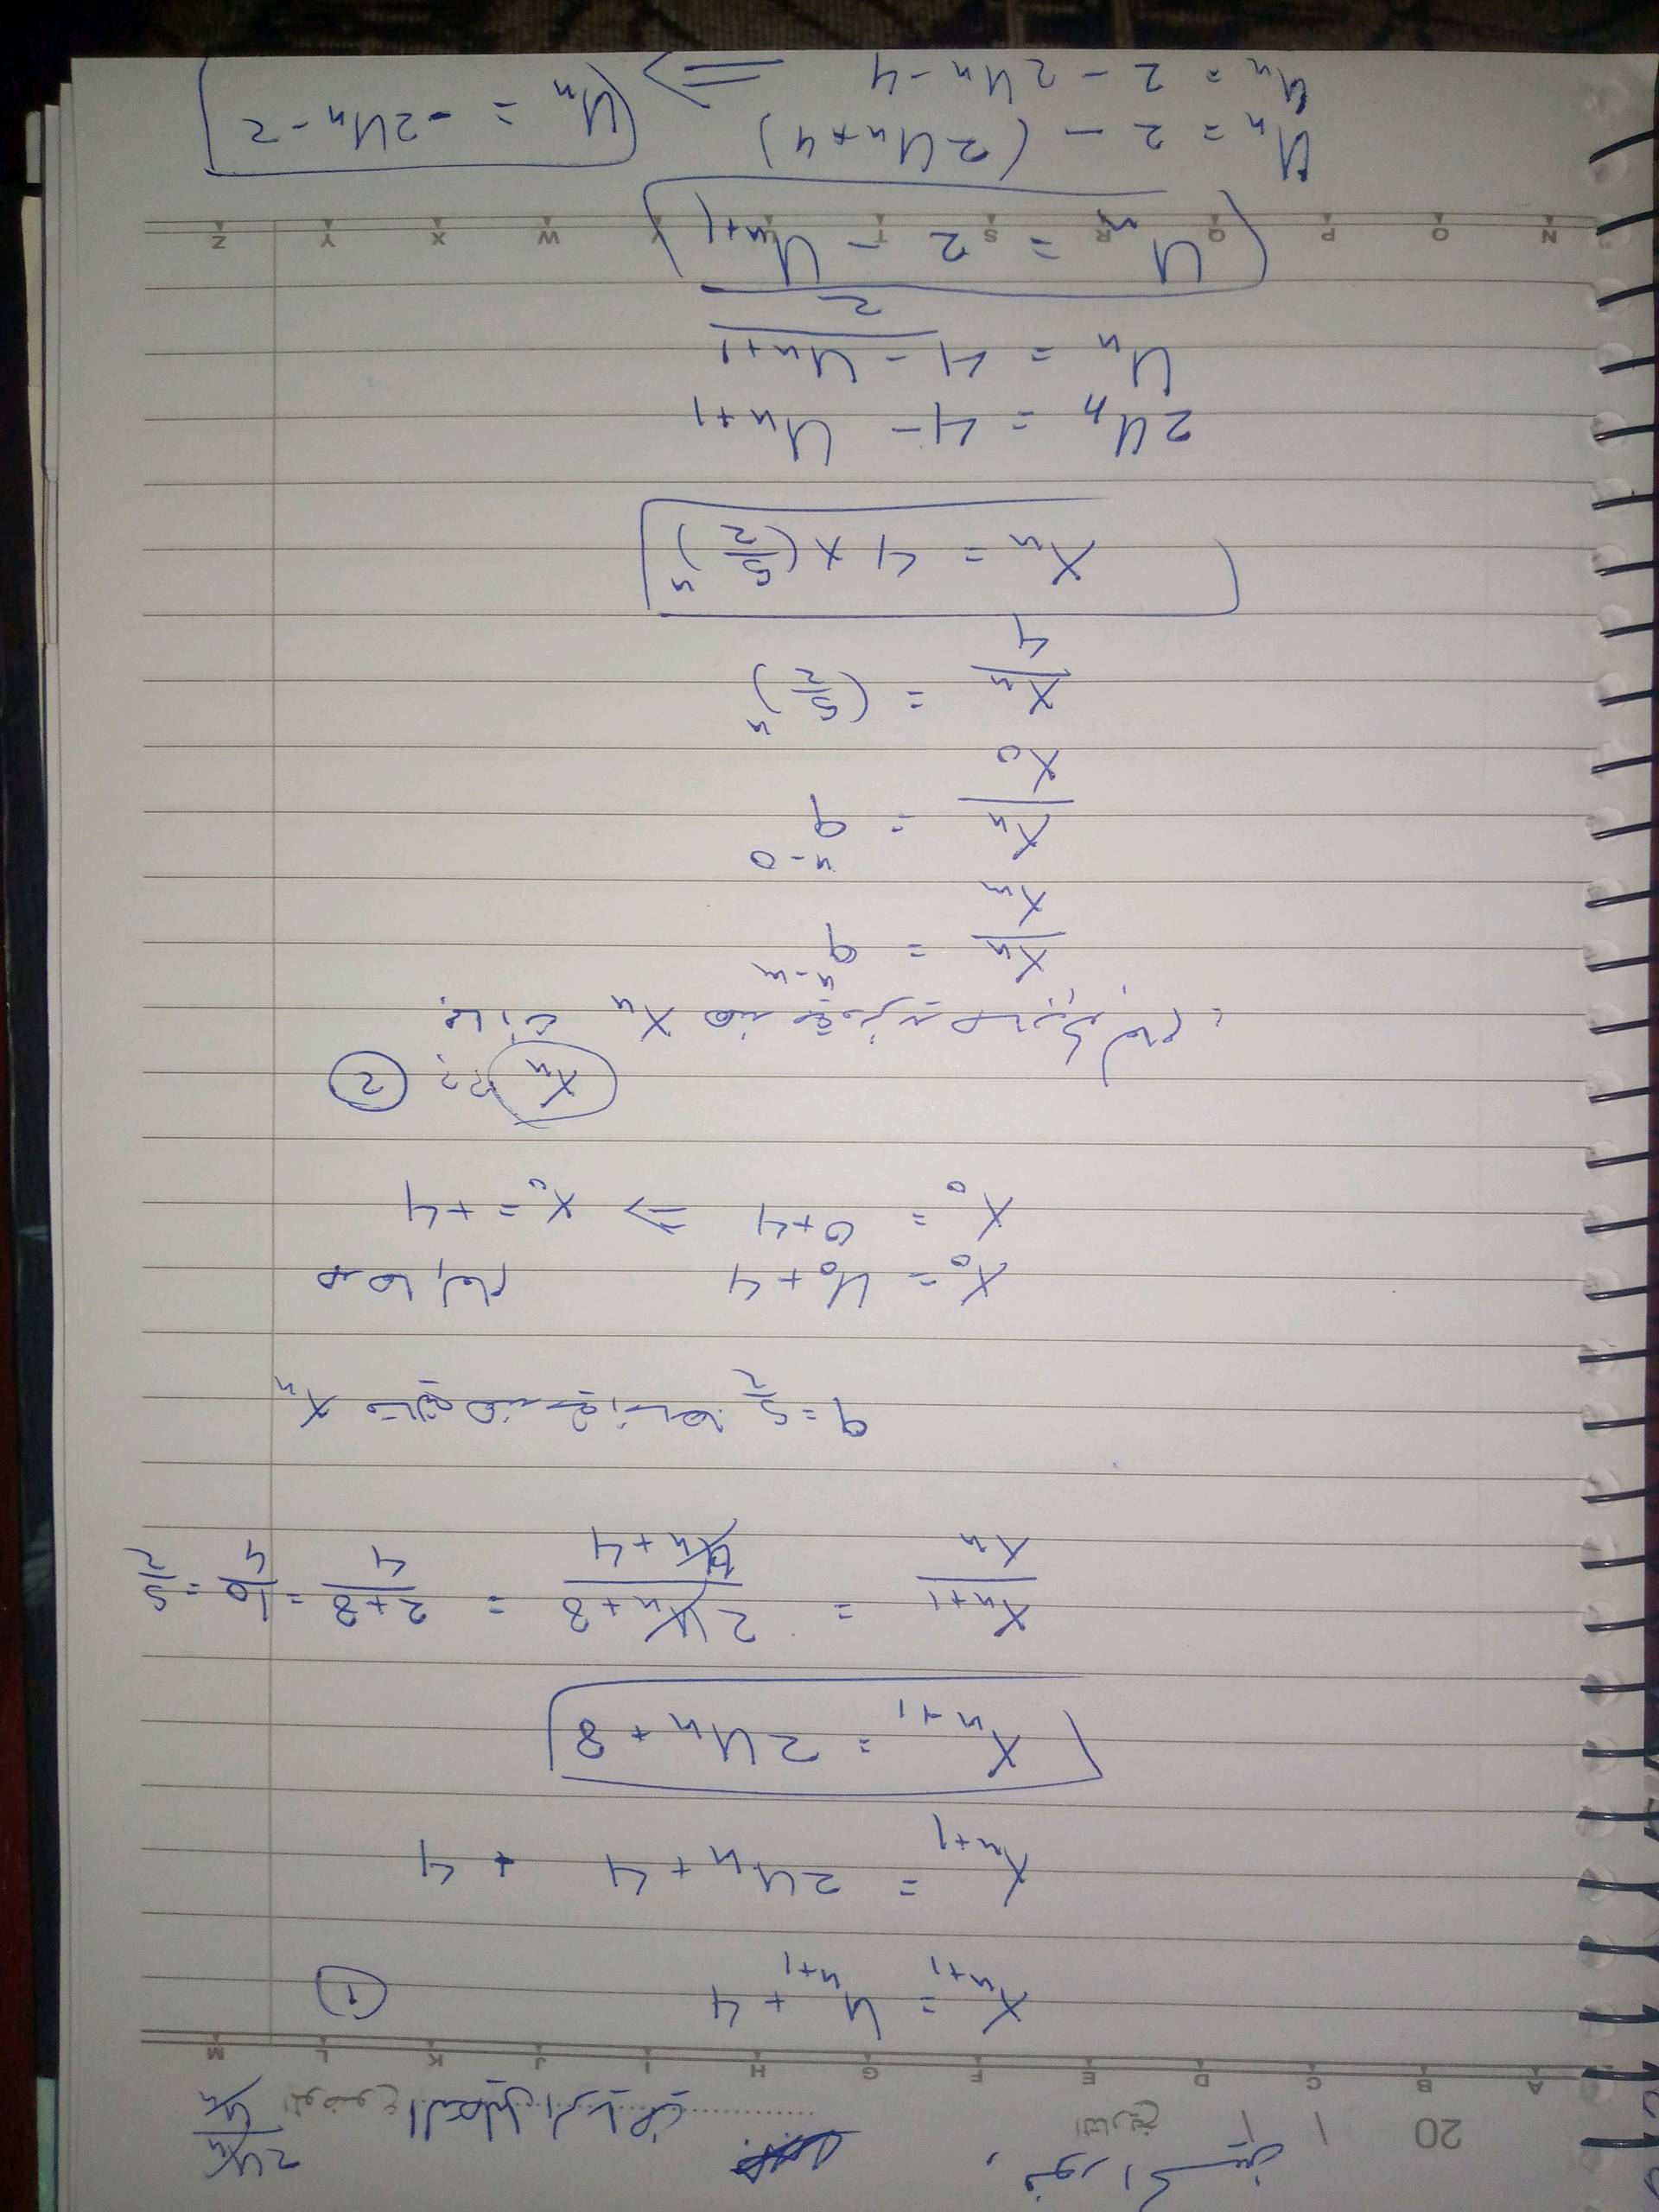 نور الحسين
20 / / التاريخ الموضوع التحليل الرياضي 2Uₙ/Uₙ
A B C D E F G H I J K L M
Xₙ₊₁ = Uₙ₊₁ + 4 ①
Xₙ₊₁ = 2Uₙ + 4 + 4
Xₙ₊₁ = 2Uₙ + 8
Xₙ₊₁/Xₙ = (2Uₙ + 8)/(Uₙ + 4) = (2+8)/4 = 10/4 = 5/2
q = 5/2 Xₙ
X₀ = U₀ + 4
X₀ = 0+4 ⇒ X₀ = +4
Xₙ ?? ②
Xₙ
Xₙ/Xₘ = qⁿ⁻ᵐ
Xₙ/X₀ = qⁿ⁻⁰
Xₙ/4 = (5/2)ⁿ
Xₙ = 4 × (5/2)ⁿ
2Uₙ = 4 - Uₙ₊₁
Uₙ = (4 - Uₙ₊₁)/2
Uₙ = 2 - Uₙ₊₁
N O P Q R S T V W X Y Z
Uₙ = 2 - (2Uₙ + 4)
Uₙ = 2 - 2Uₙ - 4 ⇒ Uₙ = -2Uₙ - 2